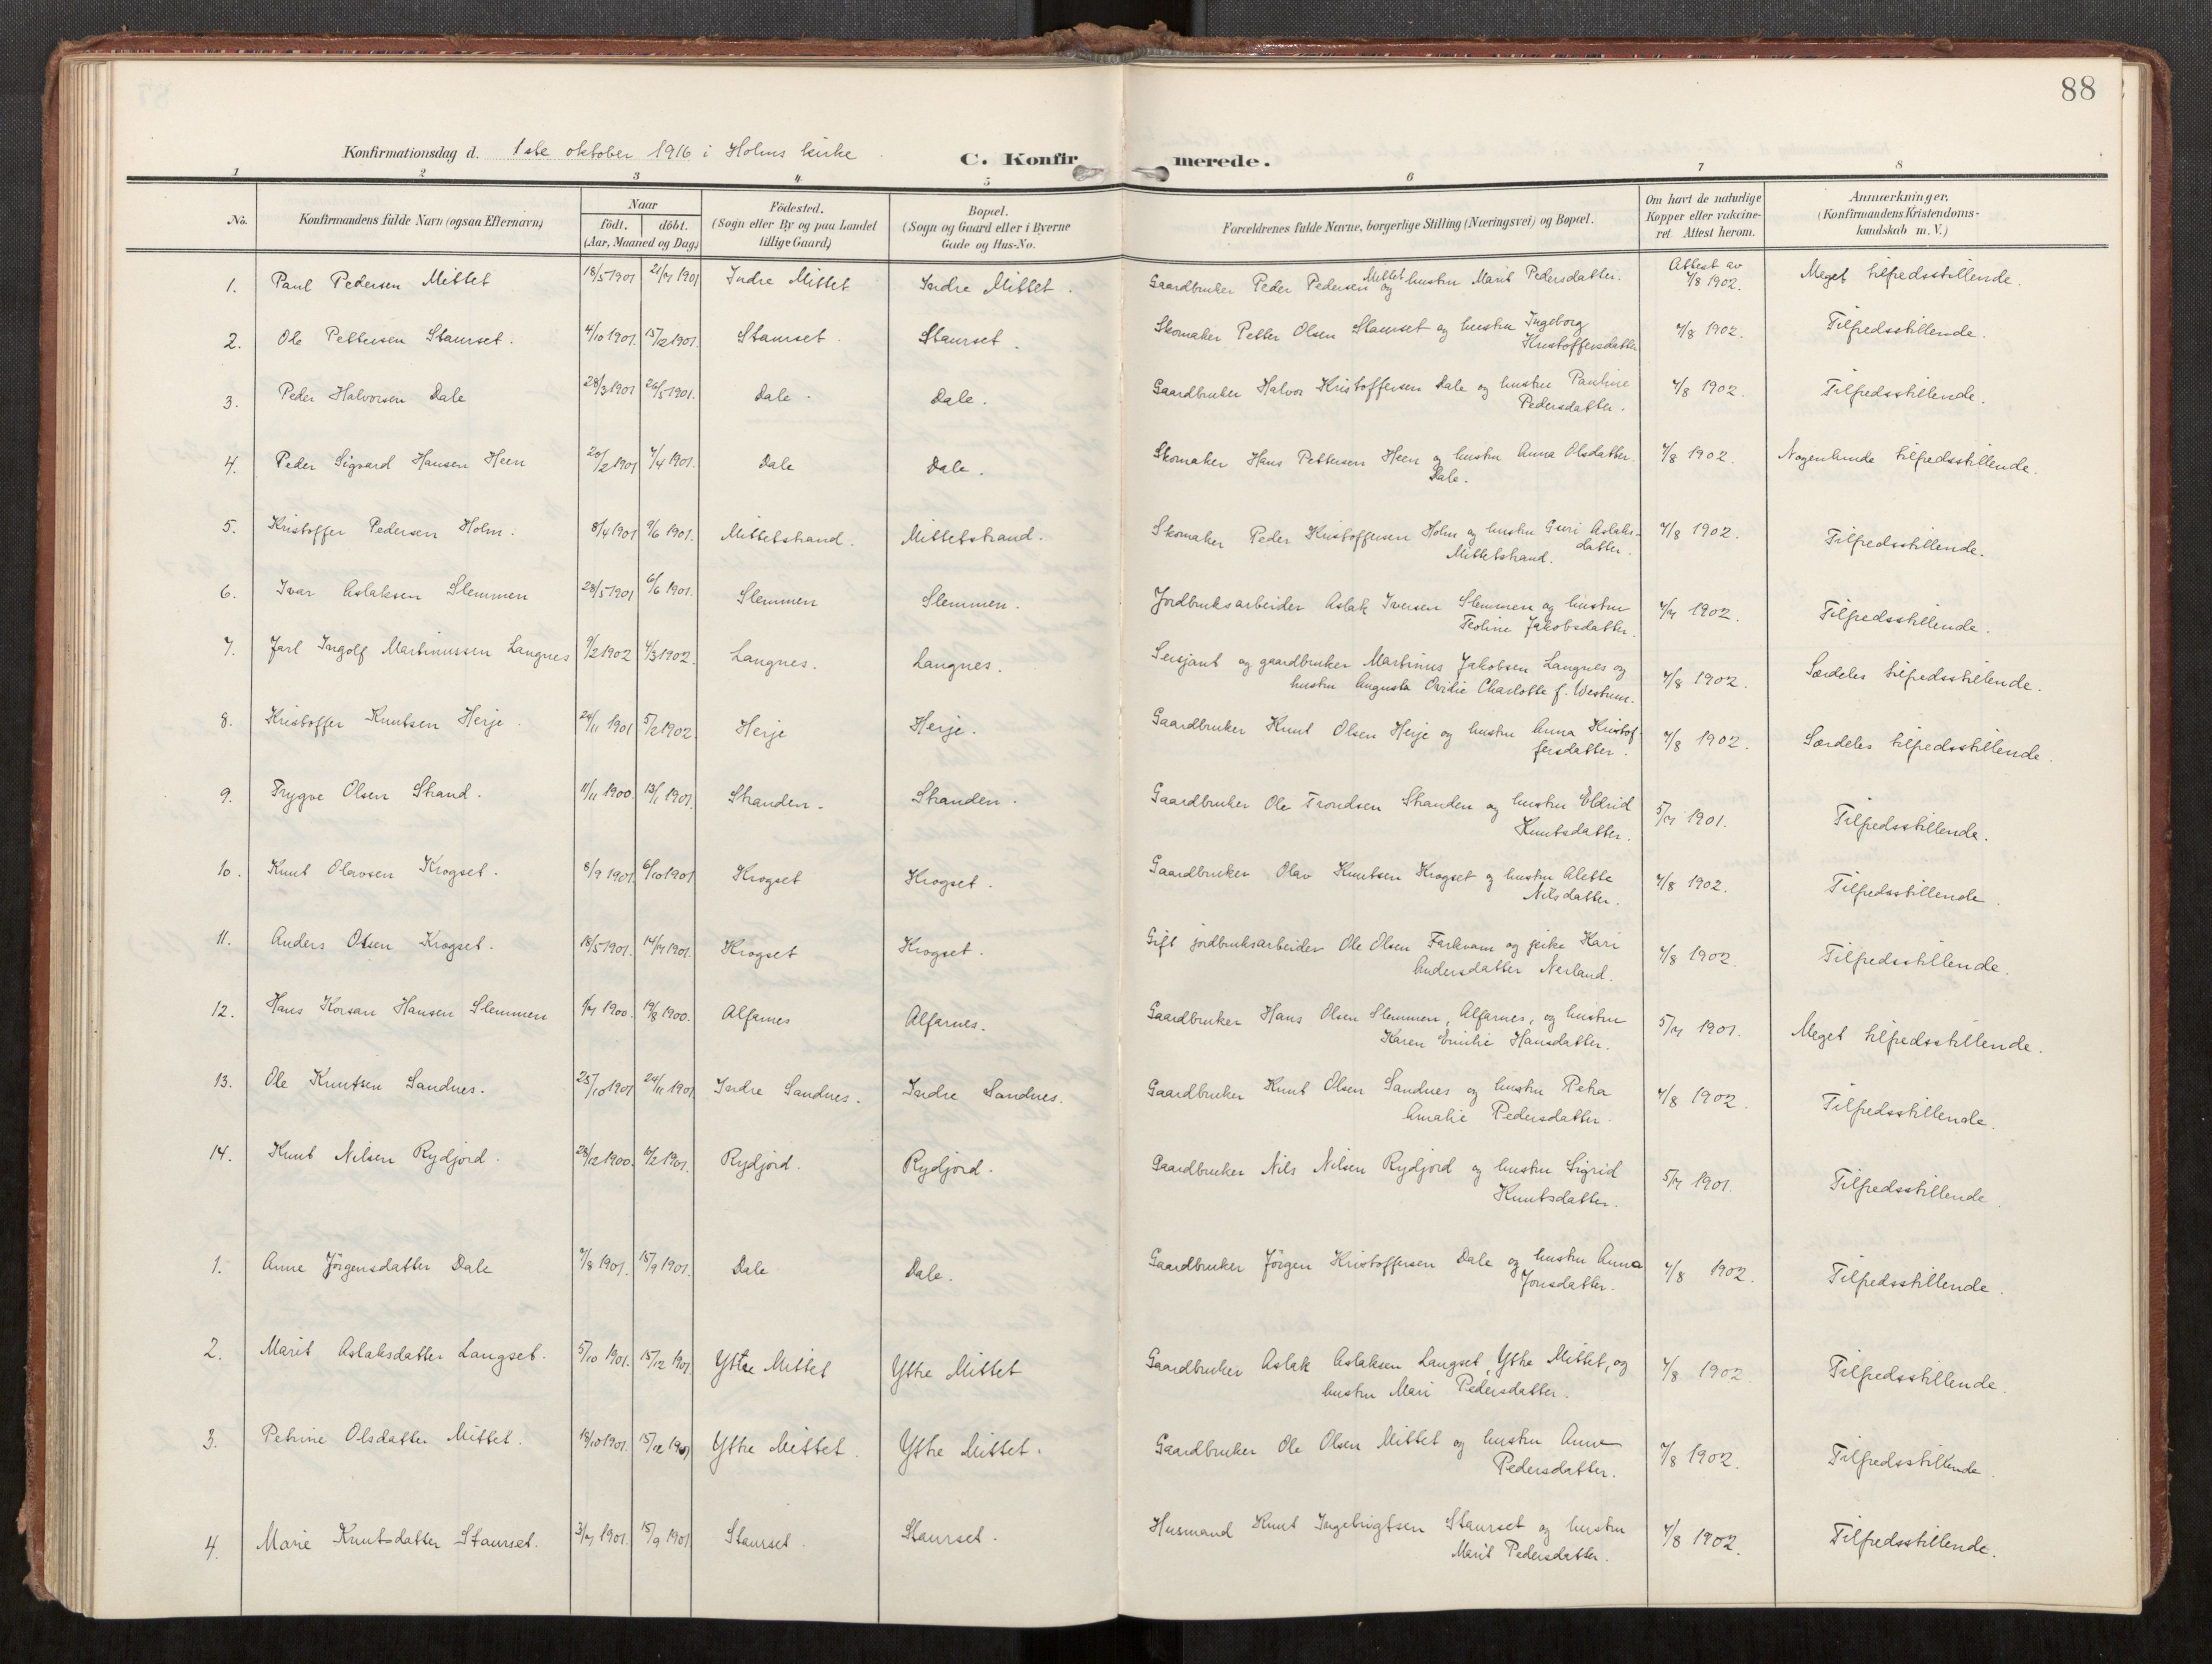 88
Konfirmationsdag d. 1ste oktober 1916 i Holms kirke
C. Konfirmerede.
1 2 3 4 5 6 7 8
No. Konfirmandens fulde Navn (ogsaa Efternavn) Naar født. døbt. (Aar, Maaned og Dag) Fødested. (Sogn eller By og paa Landet tillige Gaard) Bopæl. (Sogn og Gaard eller i Byerne Gade og Hus-No. Forældrenes fulde Navne, borgerlige Stilling (Næringsvei) og Bopæl. Om havt de naturlige Kopper eller vaccineret. Attest herom. Anmærkninger, (Konfirmandens Kristendomskundskab m. V.)
1. Paul Pedersen Mittet 18/5 1901 21/7 1901 Indre Mittet Indre Mittet. Gaardbruker Peder Pedersen Mittet og hustru Marit Pedersdatter. Attest av 7/8 1902. Meget tilfredsstillende.
2. Ole Pettersen Staurset. 4/10 1901. 15/12 1901. Staurset. Staurset. Skomaker Petter Olsen Staurset og hustru Ingeborg 7/8 1902. Tilfredsstillende.
Kristoffersdatter
3. Peder Halvorsen Dale 28/3 1901 26/5 1901. Dale. Dale. Gaardbruker Halvor Kristoffersen Dale og hustru Pauline 7/8 1902. Tilfredsstillende.
Pedersdatter.
4. Peder Sigvard Hansen Heen 20/2 1901 7/4 1901. Dale Dale. Skomaker Hans Pettersen Heen og hustru Anna Olsdatter. 7/8 1902. Nogenlunde tilfredsstillende.
Dale.
5. Kristoffer Pedersen Holm. 8/4 1901 9/6 1901. Mittetstrand. Mittetstrand. Skomaker Peder Kristoffersen Holm og hustru Guri Aslaks- 7/8 1902. Tilfredsstillende.
datter. Mittetstrand.
6. Ivar Aslaksen Slemmen 28/5 1901 6/6 1901. Slemmen Slemmen. Jordbruksarbeider Aslak Iversen Slemmen og hustru 7/7 1902. Tilfredsstillende.
Teoline Jakobsdatter.
7. Jarl Ingolf Martinussen Langnes 9/2 1902 4/3 1902. Langnes. Langnes. Sersjant og gaardbruker Martinus Jakobsen Langnes og 7/8 1902. Særdeles tilfredsstillende.
hustru Augusta Ovidie Charlotte f. Westrum.
8. Kristoffer Knutsen Herje. 24/11 1901 5/2 1902. Herje Herje. Gaardbruker Knut Olsen Herje og hustru Anna Kristof- 7/8 1902. Særdeles tilfredsstillende.
fersdatter.
9. Trygve Olsen Strand. 11/11 1900. 13/1 1901. Stranden. Stranden. Gaardbruker Ole Trondsen Stranden og hustru Eldrid 5/7 1901. Tilfredsstillende.
Knutsdatter.
10. Knut Olavsen Krogset. 8/9 1901. 6/10 1901 Krogset Krogset. Gaardbruker Olav Knutsen Krogset og hustru Alette 7/8 1902. Tilfredsstillende.
Nilsdatter.
11. Anders Olsen Krogset. 18/5 1901. 14/7 1901. Krogset Krogset. Gift jordbruksarbeider Ole Olsen Farkvam og pike Kari 7/8 1902. Tilfredsstillende.
Andersdatter Nerland.
12. Hans Korsan Hansen Slemmen 1/7 1900. 19/8 1900. Alfarnes Alfarnes. Gaardbruker Hans Olsen Slemmen, Alfarnes, og hustru 5/7 1901. Meget tilfredsstillende.
Karen Emilie Hansdatter.
13. Ole Knutsen Sandnes. 25/10 1901 24/11 1901 Indre Sandnes. Indre Sandnes. Gaardbruker Knut Olsen Sandnes og hustru Petra 7/8 1902. Tilfredsstillende.
Amalie Pedersdatter.
14. Knut Nilsen Rydjord. 28/12 1900. 10/2 1901. Rydjord. Rydjord. Gaardbruker Nils Nilsen Rydjord og hustru Sigrid 5/7 1901. Tilfredsstillende
Knutsdatter.
1. Anne Jörgensdatter Dale 7/8 1901. 15/9 1901. Dale Dale. Gaardbruker Jörgen Kristoffersen Dale og hustru Anna 7/8 1902. Tilfredsstillende.
Jonsdatter.
2. Marit Aslaksdatter Langset. 5/10 1901. 15/12 1901. Yttre Mittet Ytre Mittet Gaardbruker Aslak Aslaksen Langset, Ytre Mittet, og 7/8 1902. Tilfredsstillende.
hustru Mari Pedersdatter.
3. Petrine Olsdatter Mittet. 18/10 1901. 15/12 1901 Ytre Mittet. Ytre Mittet. Gaardbruker Ole Olsen Mittet og hustru Anne 7/8 1902. Tilfredsstillende.
Pedersdatter.
4. Marie Knutsdatter Staurset. 3/7 1901. 15/9 1901 Staurset. Staurset. Husmand Knut Ingebrigtsen Staurset og hustru 7/8 1902. Tilfredsstillende.
Marit Pedersdatter.